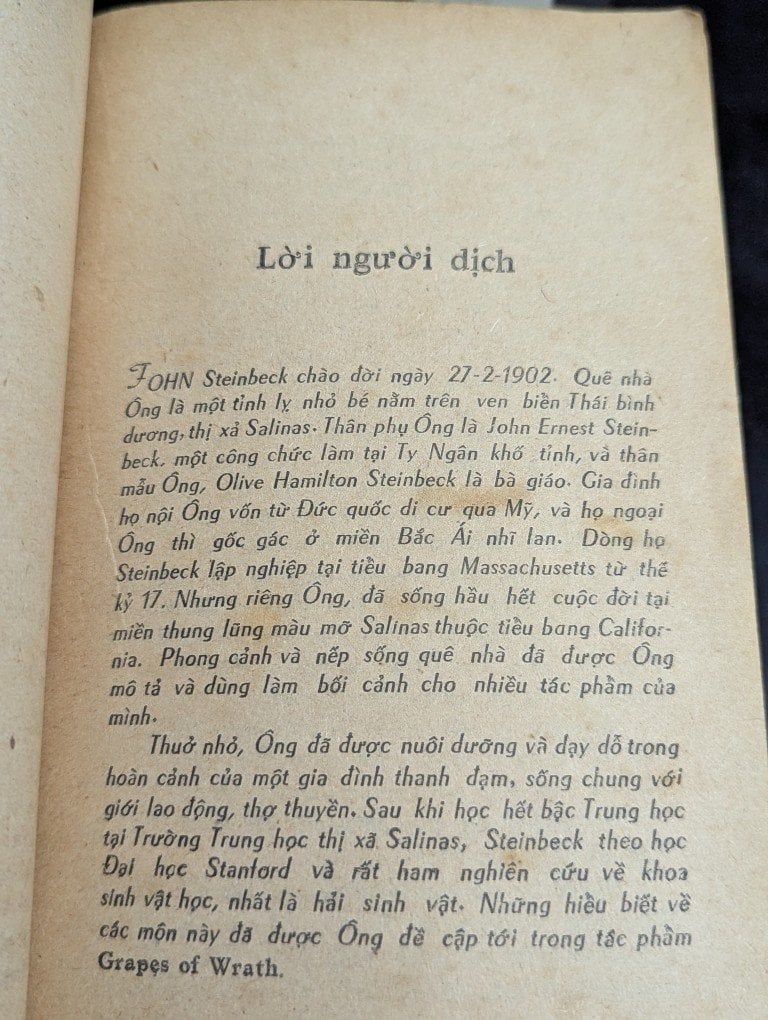 Lời người dịch
JOHN Steinbeck chào đời ngày 27-2-1902. Quê nhà
Ông là một tỉnh lỵ nhỏ bé nằm trên ven biển Thái bình
dương, thị xả Salinas. Thân phụ Ông là John Ernest Stein-
beck, một công chức làm tại Ty Ngân khố tỉnh, và thân
mẫu Ông, Olive Hamilton Steinbeck là bà giáo. Gia đình
họ nội Ông vốn từ Đức quốc di cư qua Mỹ, và họ ngoại
Ông thì gốc gác ở miền Bắc Ái nhĩ lan. Dòng họ
Steinbeck lập nghiệp tại tiểu bang Massachusetts từ thế
kỷ 17. Nhưng riêng Ông, đã sống hầu hết cuộc đời tại
miền thung lũng màu mỡ Salinas thuộc tiểu bang Califor-
nia. Phong cảnh và nếp sống quê nhà đã được Ông
mô tả và dùng làm bối cảnh cho nhiều tác phẩm của
mình.
Thuở nhỏ, Ông đã được nuôi dưỡng và dạy dỗ trong
hoàn cảnh của một gia đình thanh đạm, sống chung với
giới lao động, thợ thuyền. Sau khi học hết bậc Trung học
tại Trường Trung học thị xã Salinas, Steinbeck theo học
Đại học Stanford và rất ham nghiên cứu về khoa
sinh vật học, nhất là hải sinh vật. Những hiểu biết về
các môn này đã được Ông đề cập tới trong tác phẩm
Grapes of Wrath.